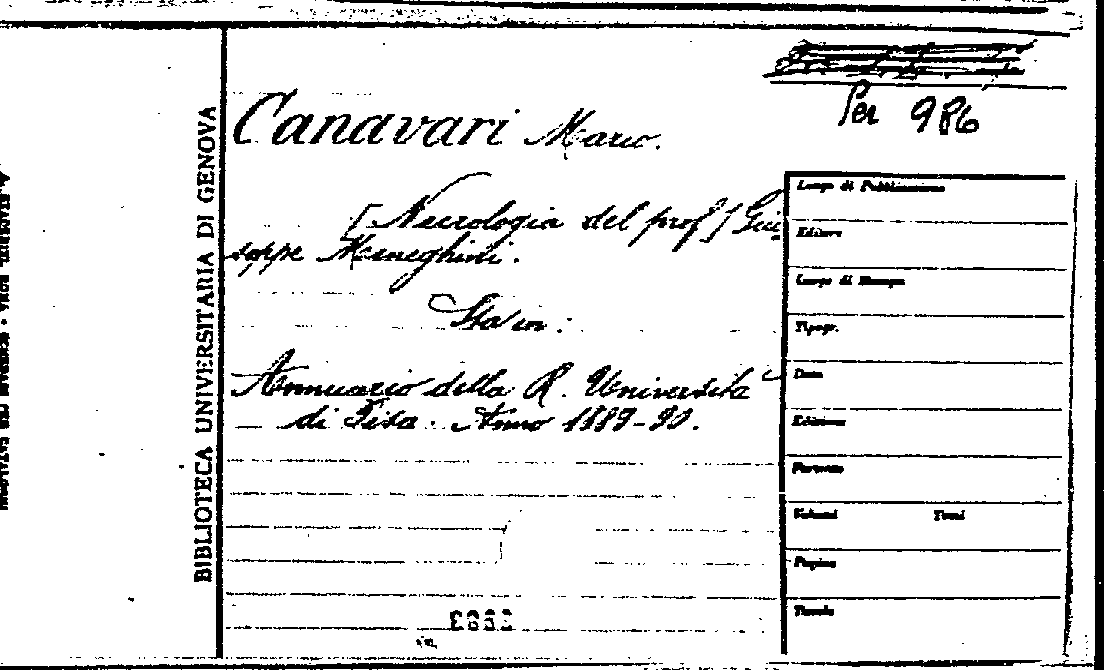 Per 986
Canavari Mario.
[Necrologia del prof] Giu
seppe Meneghini.
Sta in:
Annuario della R. Università
di Pisa. Anno 1889-90.
BIBLIOTECA UNIVERSITARIA DI GENOVA
Luogo di Pubblicazione
Editore
Luogo di Stampa
Tipogr.
Data
Edizione
Formato
Volumi Tomi
Pagine
Tavole